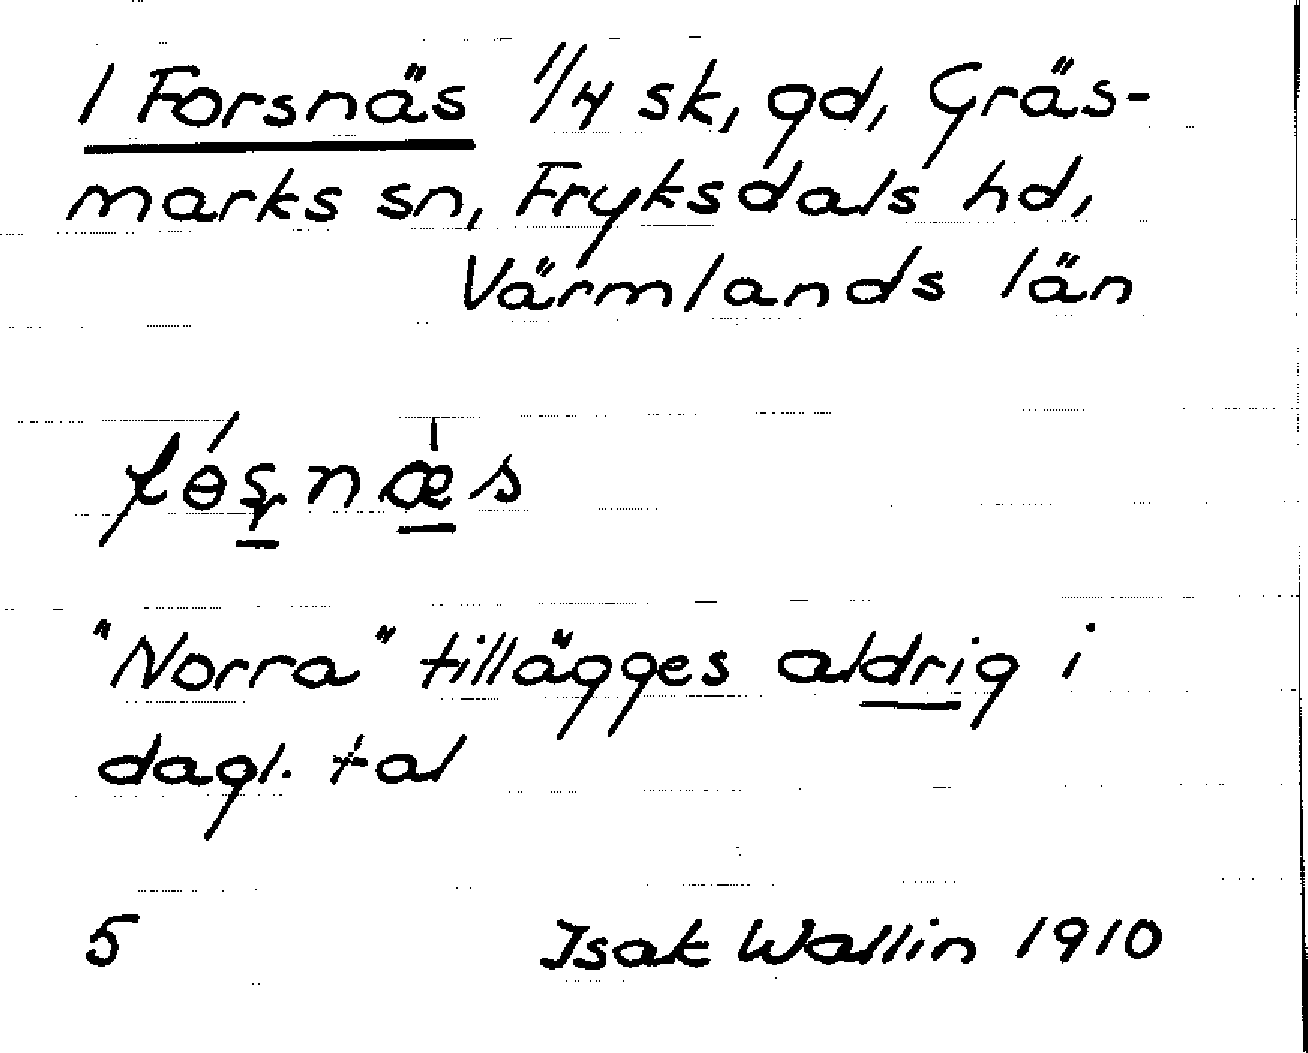 1 Forsnäs 1/4 sk, gd, Gräs-
marks sn, Fryksdals hd,
Värmlands län
fɵ́ʂnæ̍s
"Norra" tillägges aldrig i
dagl. tal
5 Isak Wallin 1910